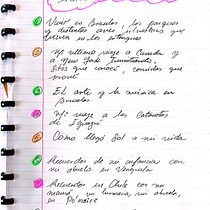 Vivir en Bruselas, los parques
y distintas aves, que
en los estanques
Mi último viaje a Canada y
a New York
Sitios que conocí, comidas que
probé
El arte y la música en
Bruselas
Mi viaje a las Cataratas
de Iguazú
Como llegó Sol a mi vida
Recuerdos de mi infancia con
mi abuela en Venezuela
Recuerdos en Chile con mi
mamá, mi hermana, mi abuela,
en Pomaire